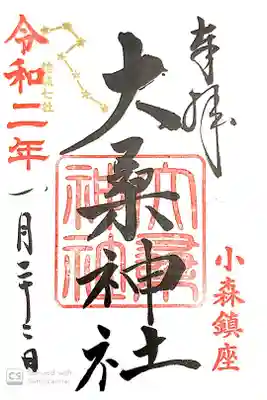 奉拝
小森鎮座
大桑神社
大桑神社
結城七社
令和二年
月二十二日
CS Scanned with CamScanner